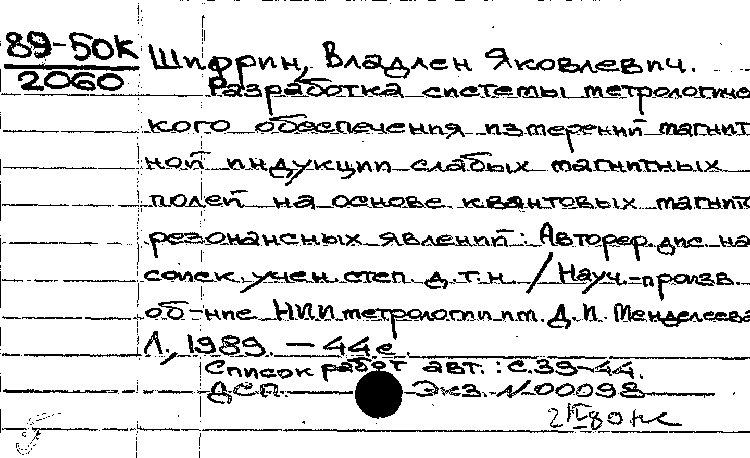 89-50к Шифрин, Владлен Яковлевич.
2060 Разработка системы метрологичес
кого обеспечения измерений магнит
ной индукции слабых магнитных
полей на основе квантовых магнито
резонансных явлений: Автореф. дис на
соиск. учен. степ. д.т.н. / Науч.-произв.
об-ние НИИ метрологии им. Д. И. Менделеева
Л., 1989. - 44 с.
Список работ авт.: с. 39-44.
ДСП. Экз. N 00098